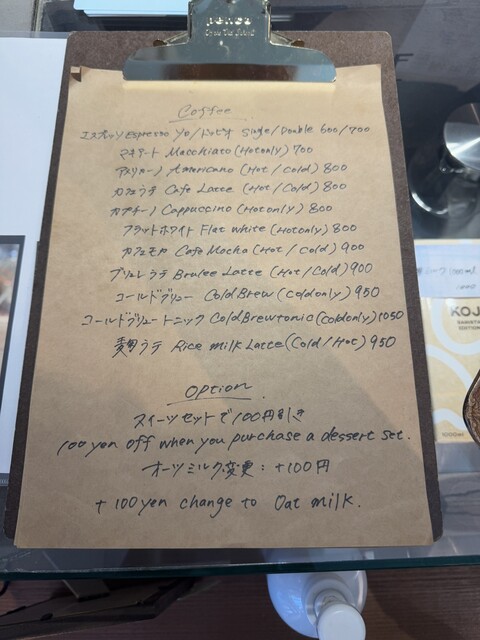 penco
Coffee
エスプレッソ Espresso ソロ/ドッピオ Single/Double 600/700
マキアート Macchiato (Hot only) 700
アメリカーノ Americano (Hot / Cold) 800
カフェラテ Cafe Latte (Hot / Cold) 800
カプチーノ Cappuccino (Hot only) 800
フラットホワイト Flat white (Hot only) 800
カフェモカ Cafe Mocha (Hot / Cold) 900
ブリュレラテ Brulee Latte (Hot / Cold) 900
コールドブリュー Cold Brew (Cold only) 950
コールドブリュートニック Cold Brew tonic (Cold only) 1050
麹ラテ Rice milk Latte (Cold / Hot) 950
Option
スイーツセットで100円引き
100 yen off when you purchase a dessert set.
オーツミルク変更：+100円
+ 100 yen change to Oat milk.
KOJ
EDITION
1000ml